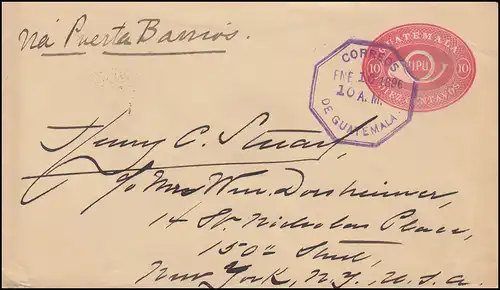 Via Puerta Barrios.
CORREOS
ENE 10 1896
10 A.M.
DE GUATEMALA.
GUATEMALA
10 UPU 10
DIEZ CENTAVOS
Henry C. Stuart,
c/o Mrs Wm. Dorsheimer,
14 St. Nicholas Place,
150th Street,
New York, N.Y., U.S.A.